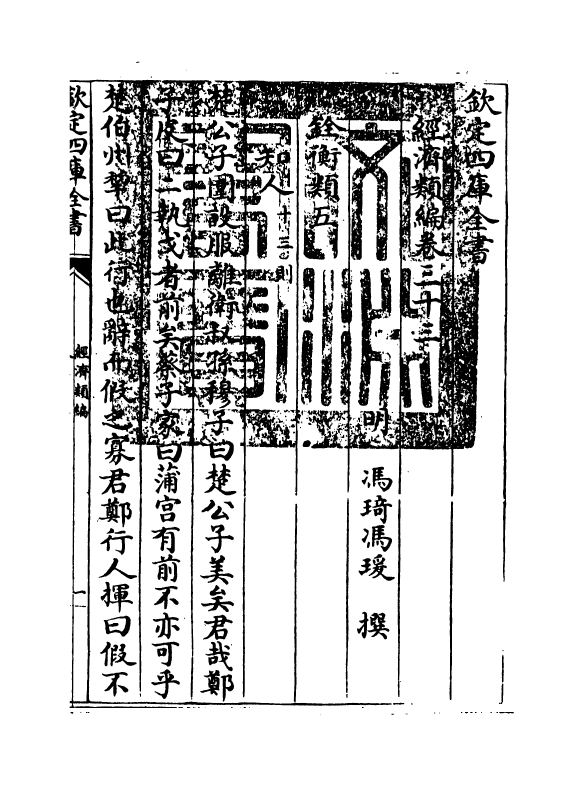 欽定四庫全書
經濟類編卷三十三
明 馮琦馮瑗 撰
銓衡類五
知人十三則
楚公子圍設服離衛叔孫穆子曰楚公子美矣君哉鄭
子皮曰二執戈者前矣蔡子家曰蒲宫有前不亦可乎
楚伯州犂曰此行也辭而假之寡君鄭行人揮曰假不
欽定四庫全書
經濟類編
一